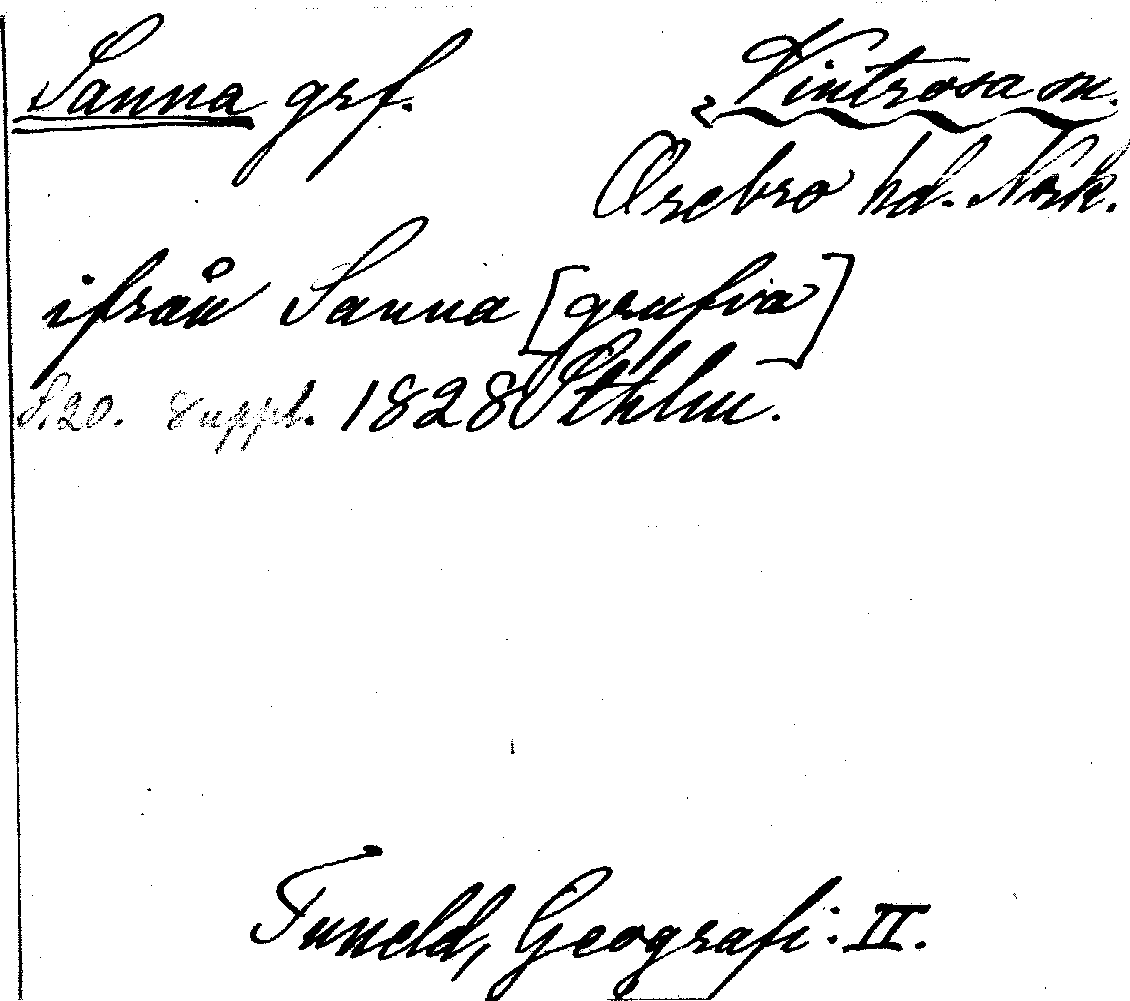 Sanna grf. Vintrosa sn.
Örebro hd. Närk.
ifrån Sanna [grufva]
S.20. suppl. 1828 Sthlm.
Tuneld, Geografi. II.